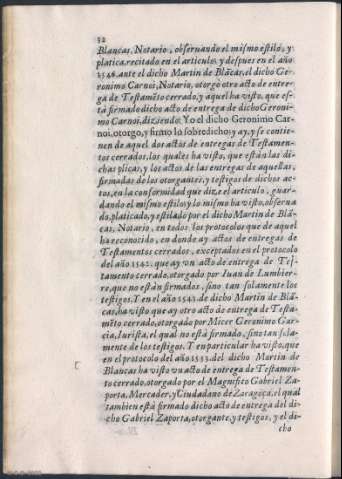 32
Blancas, Notario, obseruando el mismo estilo, y
platica recitado en el articulo, y despues en el año
1546. ante el dicho Martin de Blãcas, el dicho Ger
ronimo Carnoi, Notario, otorgò otro acto de entre-
ga de Testamẽto cerrado, y aquel ha visto, que es-
tà firmado dicho acto de entrega de dicho Geroni-
mo Carnoi, diziendo: Yo el dicho Geronimo Car-
noi, otorgo, y firmo lo sobredicho; y ay, y se contie-
nen de aquel dos actos de entregas de Testamen-
tos cerrados, los quales ha visto, que están las di-
chas plicas, y los actos de las entregas de aquellas,
firmadas de los otorgantes, y testigos de dichos ac-
tos, en la conformidad que dize el articulo, guar-
dando el mismo estilo; y lo mismo ha visto, obserua
do, platicado, y estilado por el dicho Martin de Blã-
cas, Notario, en todos los protocolos que de aquel
ha reconocido, en donde ay actos de entregas de
Testamentos cerrados, exceptados en el protocolo
del año 1542. que ay vn acto de entrega de Tes-
tamento cerrado, otorgado por Iuan de Lumbier-
re, que no están firmados, sino tan solamente los
testigos. Y en el año 1543. de dicho Martin de Blã-
cas, ha visto que ay otro acto de entrega de Testa-
mẽto cerrado, otorgado por Micer Geronimo Gar-
cia, Iurista, el qual no està firmado, sino tan sola-
mente de los testigos. Y en particular ha visto, que
en el protocolo del año 1553. del dicho Martin de
Blancas ha visto vn acto de entrega de Testamen-
to cerrado, otorgado por el Magnifico Gabriel Za-
porta, Mercader, y Ciudadano de Zaragoça, el qual
tambien està firmado dicho acto de entrega del di-
cho Gabriel Zaporta, otorgante, y testigos, y el di-
cho